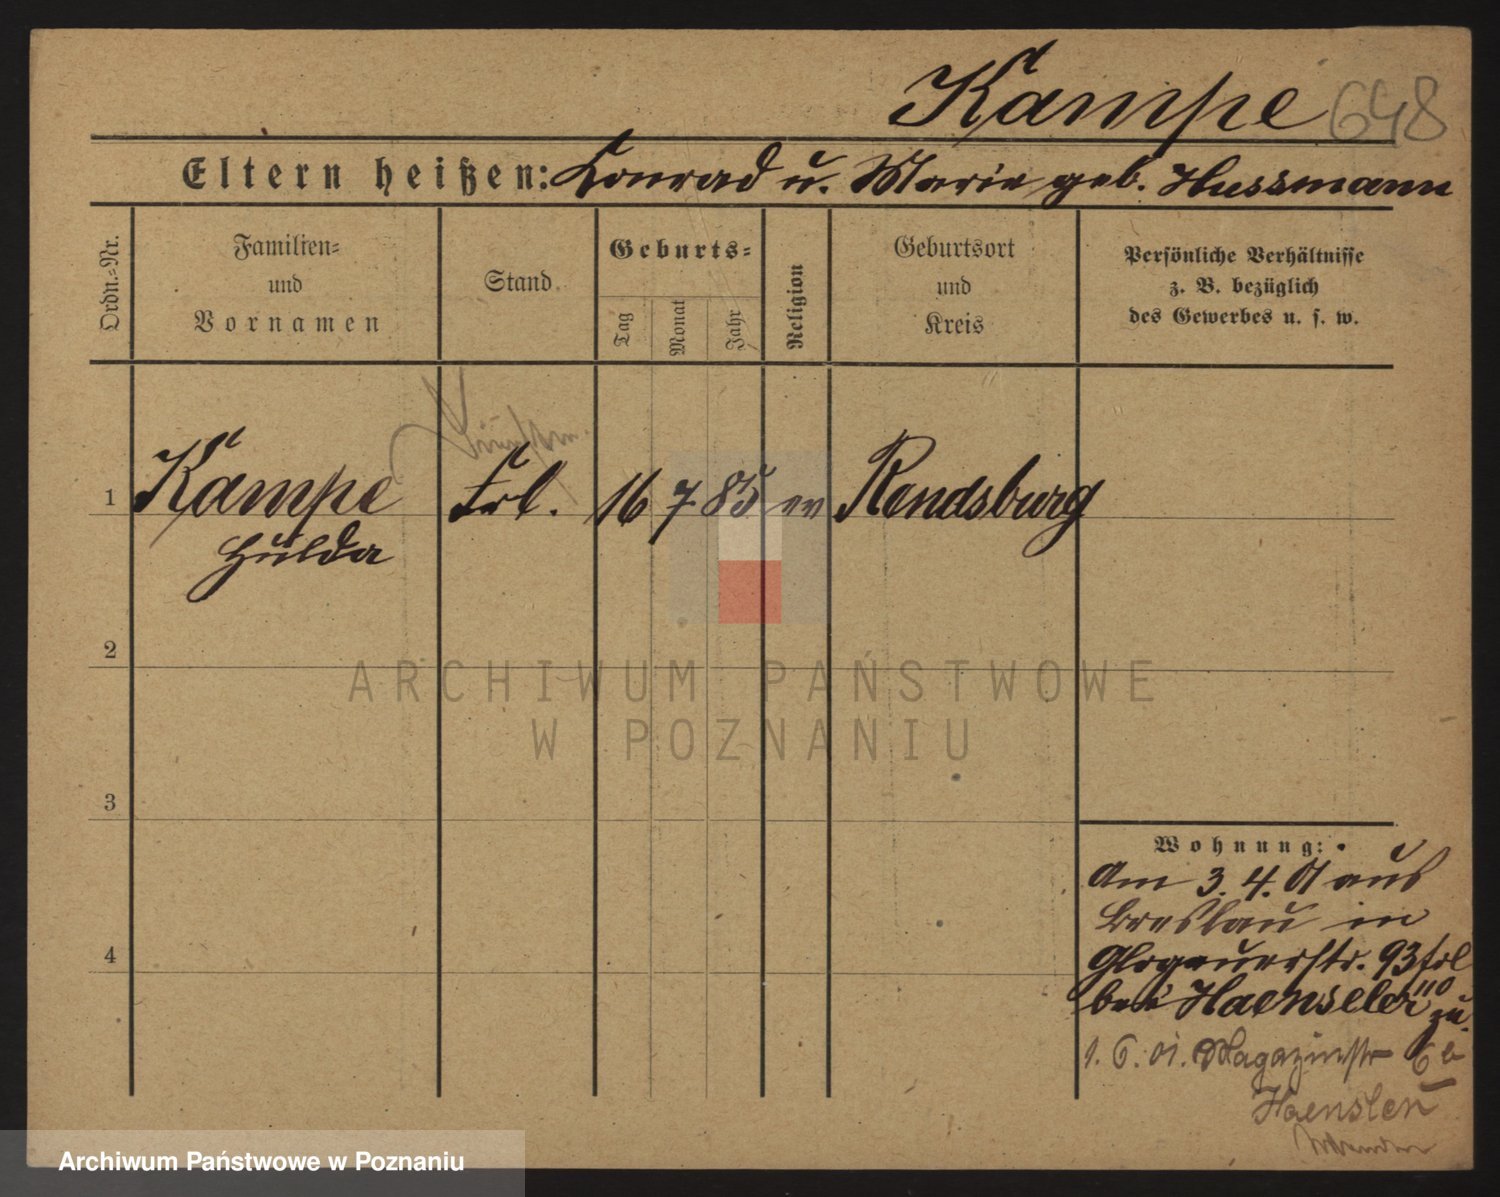 Kampe 648
Eltern heißen: Konrad u. Marie geb. Hussmann
Ordn.=Nr.
Familien=
und
Vornamen
Stand
Geburts=
Tag
Monat
Jahr
Religion
Geburtsort
und
Kreis
Persönliche Verhältnisse
z. B. bezüglich
des Gewerbes u. s. w.
1 Kampe Frl. 16 7 85 ev Rendsburg
Hulda
2
3
4
Wohnung:
Am 3. 4. 01 aus
Breslau in
Glogauerstr. 93
bei Haenseler zu.
1. 6. 01. Magazinstr 6 b
Haenslen
ARCHIWUM PAŃSTWOWE
W POZNANIU
Archiwum Państwowe w Poznaniu